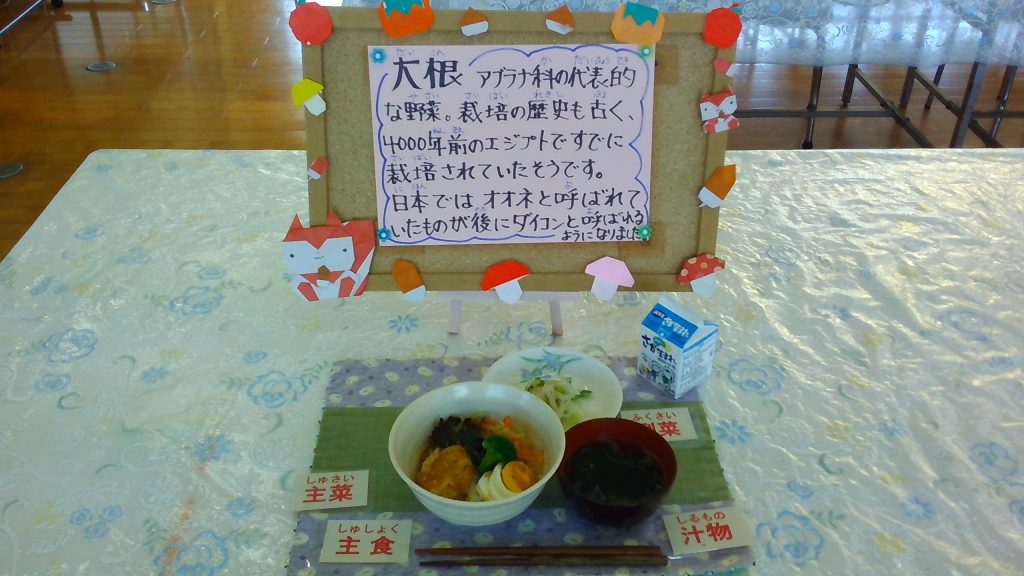 だい こん
大根 アブラナ科の代表的
な野菜。栽培の歴史も古く、
4000年前のエジプトですでに
栽培されていたそうです。
日本では オオネと呼ばれて
いたものが後にダイコンと呼ばれる
ようになりました。
さがまれ
ふくさい
副菜
しゅさい
主菜
しゅしょく
主食
しるもの
汁物